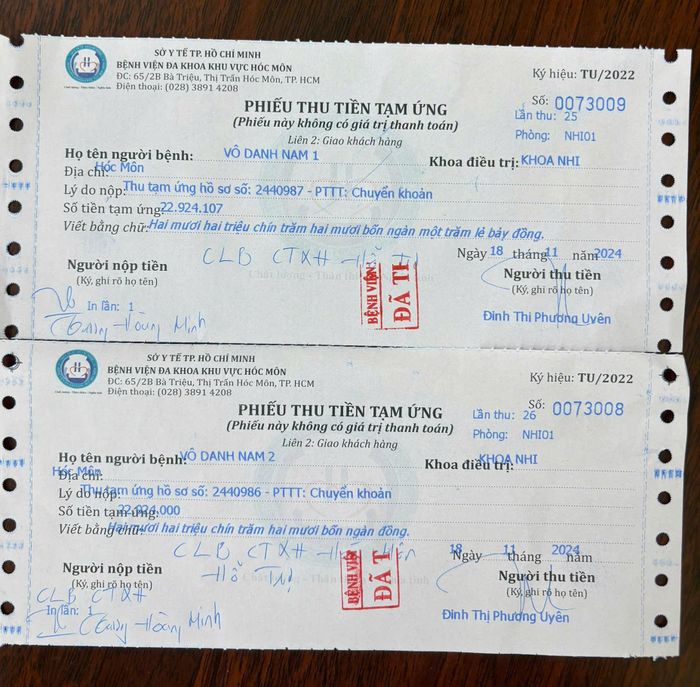 SỞ Y TẾ TP. HỒ CHÍ MINH
BỆNH VIỆN ĐA KHOA KHU VỰC HÓC MÔN
ĐC: 65/2B Bà Triệu, Thị Trấn Hóc Môn, TP. HCM
Điện thoại: (028) 3891 4208
Ký hiệu: TU/2022
Số: 0073009
PHIẾU THU TIỀN TẠM ỨNG
Lần thu: 25
(Phiếu này không có giá trị thanh toán)
Phòng: NHI01
Liên 2: Giao khách hàng
Họ tên người bệnh: VÔ DANH NAM 1 Khoa điều trị: KHOA NHI
Địa chỉ: Hóc Môn
Lý do nộp: Thu tạm ứng hồ sơ số: 2440987 - PTTT: Chuyển khoản
Số tiền tạm ứng: 22.924.107
Viết bằng chữ: Hai mươi hai triệu chín trăm hai mươi bốn ngàn một trăm lẻ bảy đồng.
CLB CTXH
Ngày 18 tháng 11 năm 2024
Người nộp tiền
Người thu tiền
(Ký, ghi rõ họ tên)
(Ký, ghi rõ họ tên)
BỆNH VIỆN
ĐÃ
In lần: 1
Hoàng Minh
Đinh Thị Phương Uyên
SỞ Y TẾ TP. HỒ CHÍ MINH
BỆNH VIỆN ĐA KHOA KHU VỰC HÓC MÔN
ĐC: 65/2B Bà Triệu, Thị Trấn Hóc Môn, TP. HCM
Điện thoại: (028) 3891 4208
Ký hiệu: TU/2022
Số: 0073008
PHIẾU THU TIỀN TẠM ỨNG
Lần thu: 26
(Phiếu này không có giá trị thanh toán)
Phòng: NHI01
Liên 2: Giao khách hàng
Họ tên người bệnh: VÔ DANH NAM 2 Khoa điều trị: KHOA NHI
Địa chỉ: Hóc Môn
Lý do nộp: Thu tạm ứng hồ sơ số: 2440986 - PTTT: Chuyển khoản
Số tiền tạm ứng: 22.924.000
Viết bằng chữ: Hai mươi hai triệu chín trăm hai mươi bốn ngàn đồng.
CLB CTXH
Ngày 18 tháng 11 năm 2024
Hỗ Trợ
Người nộp tiền
Người thu tiền
(Ký, ghi rõ họ tên)
(Ký, ghi rõ họ tên)
BỆNH VIỆN
ĐÃ T
CLB CTXH
In lần: 1
Hoàng Minh
Đinh Thị Phương Uyên